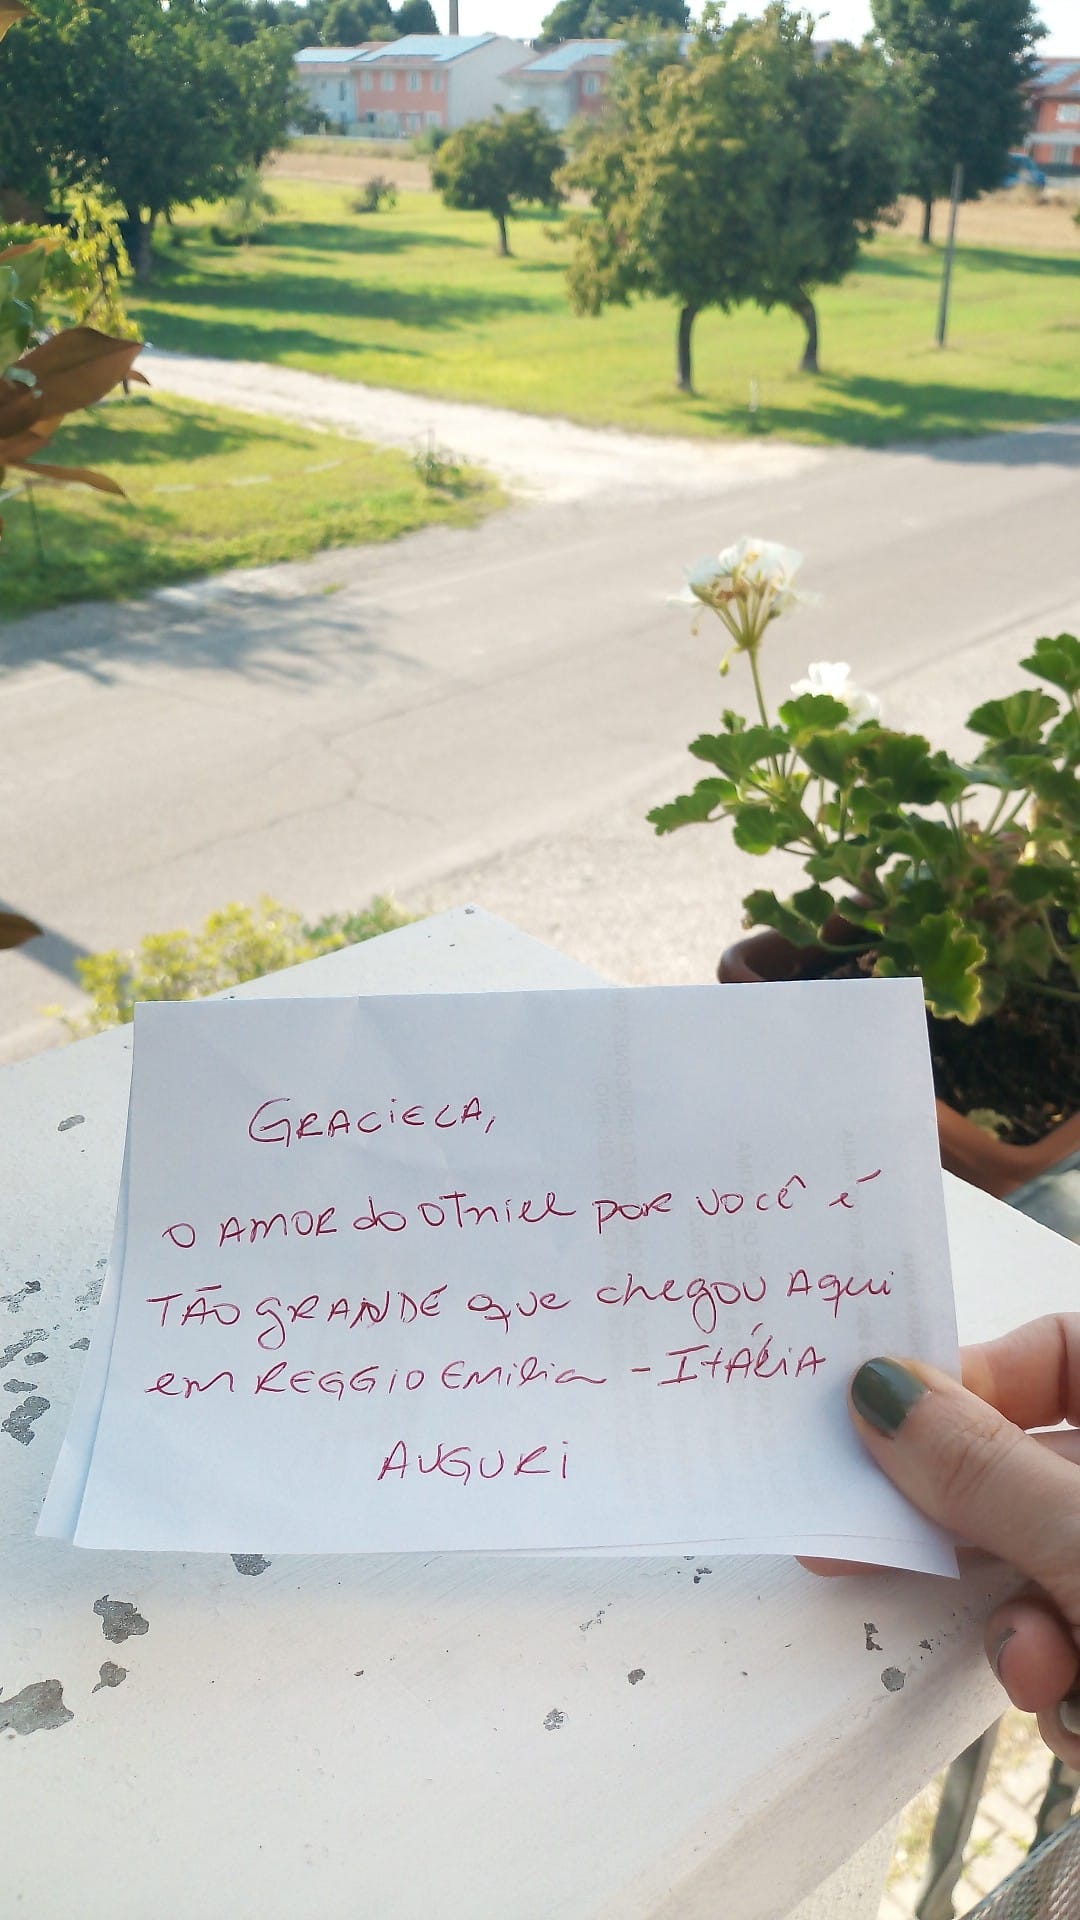 GRACIELA,
O AMOR do OTniel por você é
TÃO GRANDE que chegou Aqui
em REGGIO Emilia - ITÁLiA
AUGURi